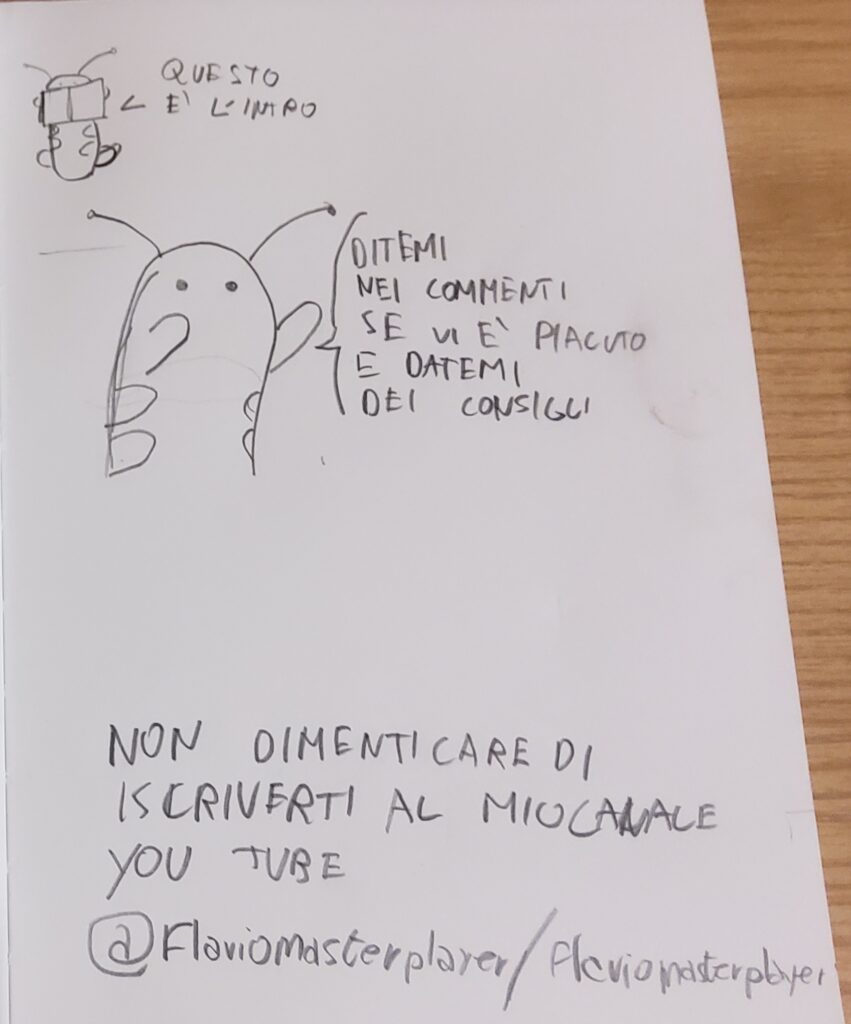 QUESTO
E' L'INTRO
DITEMI
NEI COMMENTI
SE VI E' PIACIUTO
E DATEMI
DEI CONSIGLI
NON DIMENTICARE DI
ISCRIVERTI AL MIO CANALE
YOU TUBE
@Flaviomasterplayer/flaviomasterplayer